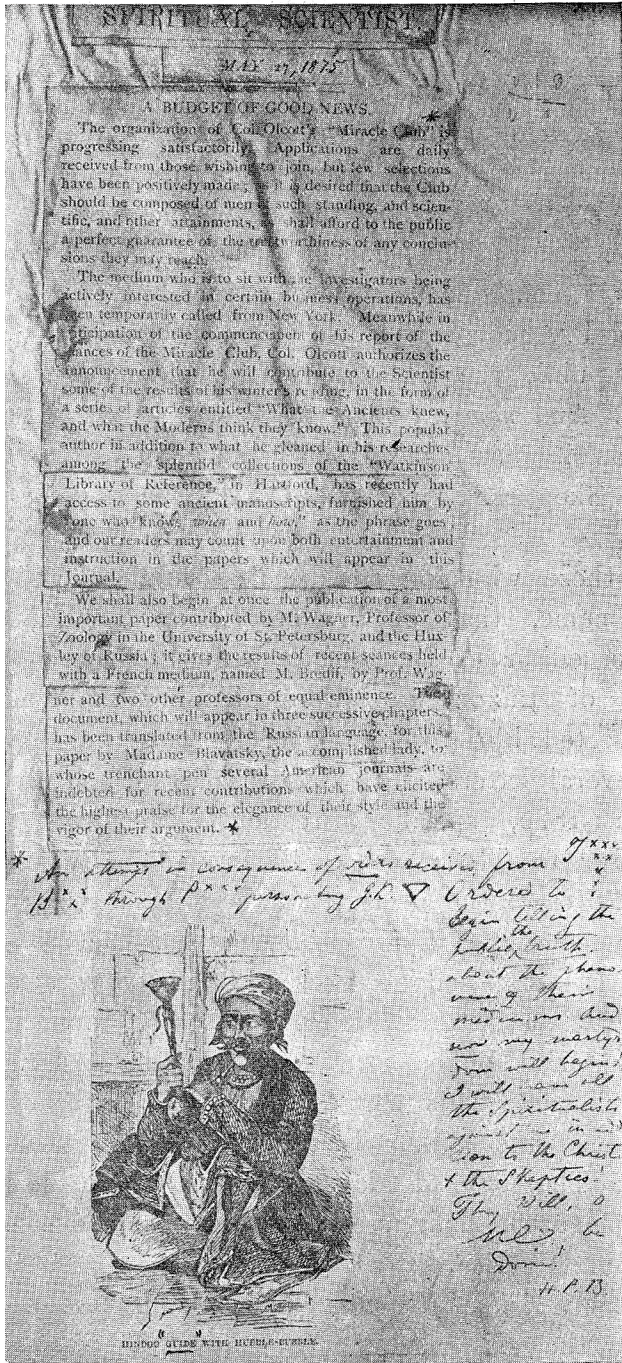 SPIRITUAL SCIENTIST.
MAY 27, 1875
A BUDGET OF GOOD NEWS.
The organization of Col. Olcott's "Miracle Club" is
progressing satisfactorily. Applications are daily
received from those wishing to join, but few selections
have been positively made; as it is desired that the Club
should be composed of men of such standing, and scien-
tific, and other attainments, as shall afford to the public
a perfect guarantee of the trustworthiness of any conclu-
sions they may reach.
The medium who is to sit with the investigators being
actively interested in certain business operations, has
been temporarily called from New York. Meanwhile in
anticipation of the commencement of his report of the
séances of the Miracle Club, Col. Olcott authorizes the
announcement that he will contribute to the Scientist
some of the results of his winter's reading, in the form of
a series of articles entitled "What the Ancients knew,
and what the Moderns think they know." This popular
author in addition to what he gleaned in his researches
among the splendid collections of the "Watkinson
Library of Reference," in Hartford, has recently had
access to some ancient manuscripts, furnished him by
"one who knows when and how," as the phrase goes;
and our readers may count upon both entertainment and
instruction in the papers which will appear in this
Journal.
We shall also begin at once the publication of a most
important paper contributed by M. Wagner, Professor of
Zoology in the University of St. Petersburg, and the Hux-
ley of Russia; it gives the results of recent seances held
with a French medium, named M. Brédif, by Prof. Wag-
ner and two other professors of equal eminence. The
document, which will appear in three successive chapters,
has been translated from the Russian language, for this
paper by Madame Blavatsky, the accomplished lady, to
whose trenchant pen several American journals are
indebted for recent contributions which have elicited
the highest praise for the elegance of their style and the
vigor of their argument. *
* An attempt in consequence of orders received from T xxx
B xxx through P xxx personating J.K. ▽ Ordered to
begin telling the
public the truth
about the pheno-
mena & their
mediums and
now my martyr-
dom will begin!
I will have all
the Spiritualists
against me in addi-
tion to the Christ
& the Skeptics!
Thy Will, o
M∴ be
Done!
H. P. B.
HINDOO "GUIDE" WITH HUBBLE-BUBBLE.